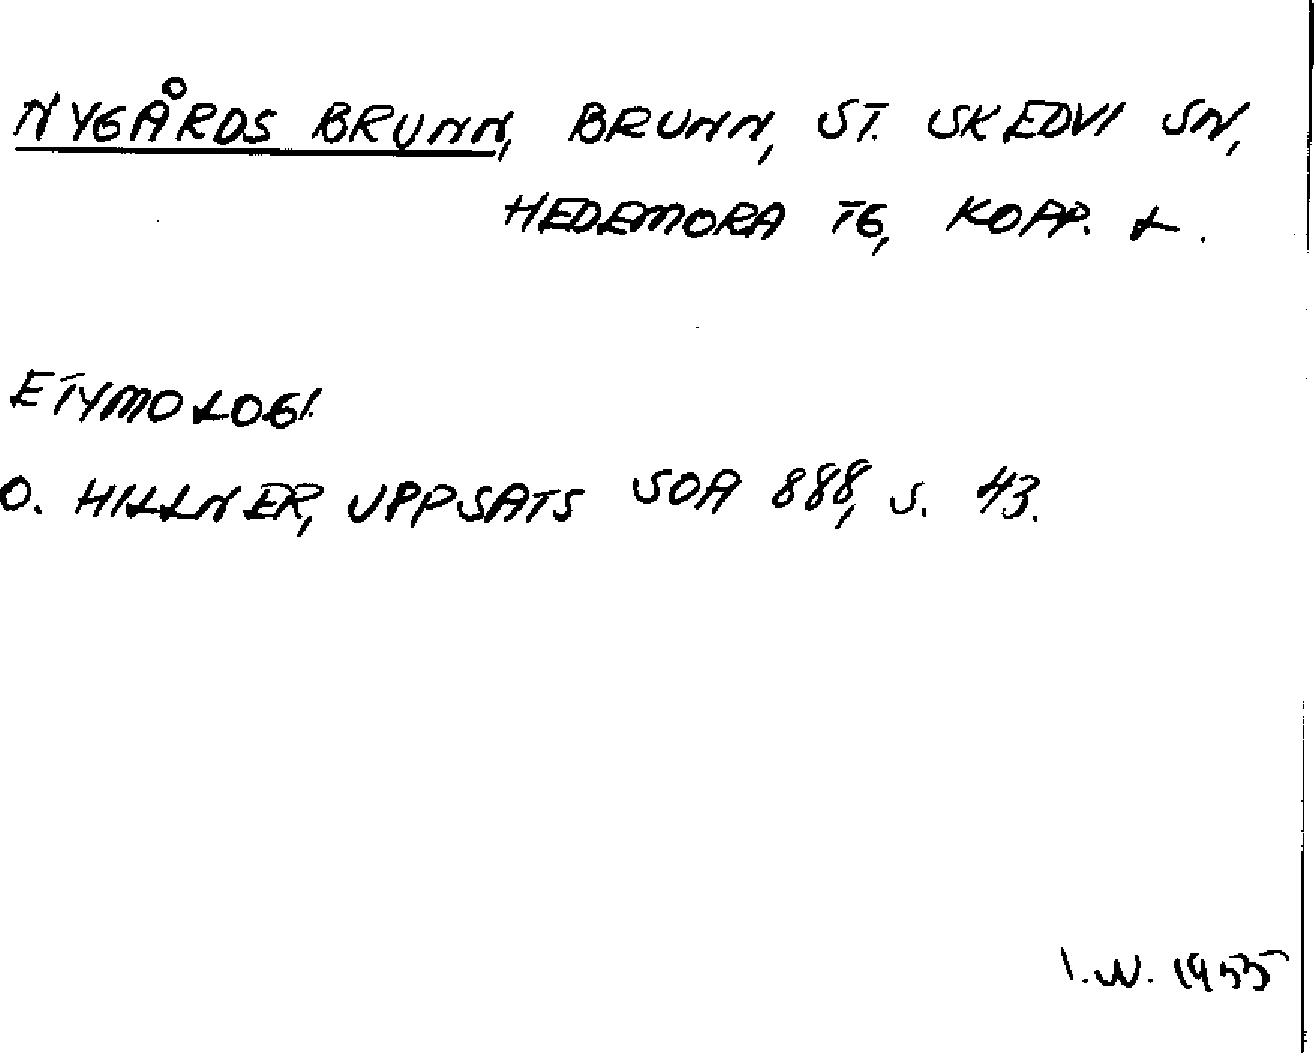 NYGÅRDS BRUNN, BRUNN, ST. SKEDVI SN,
HEDEMORA TG, KOPP. L.
ETYMOLOGI.
O. HILLNER, UPPSATS SOA 888, S. 43.
I.W. 1955